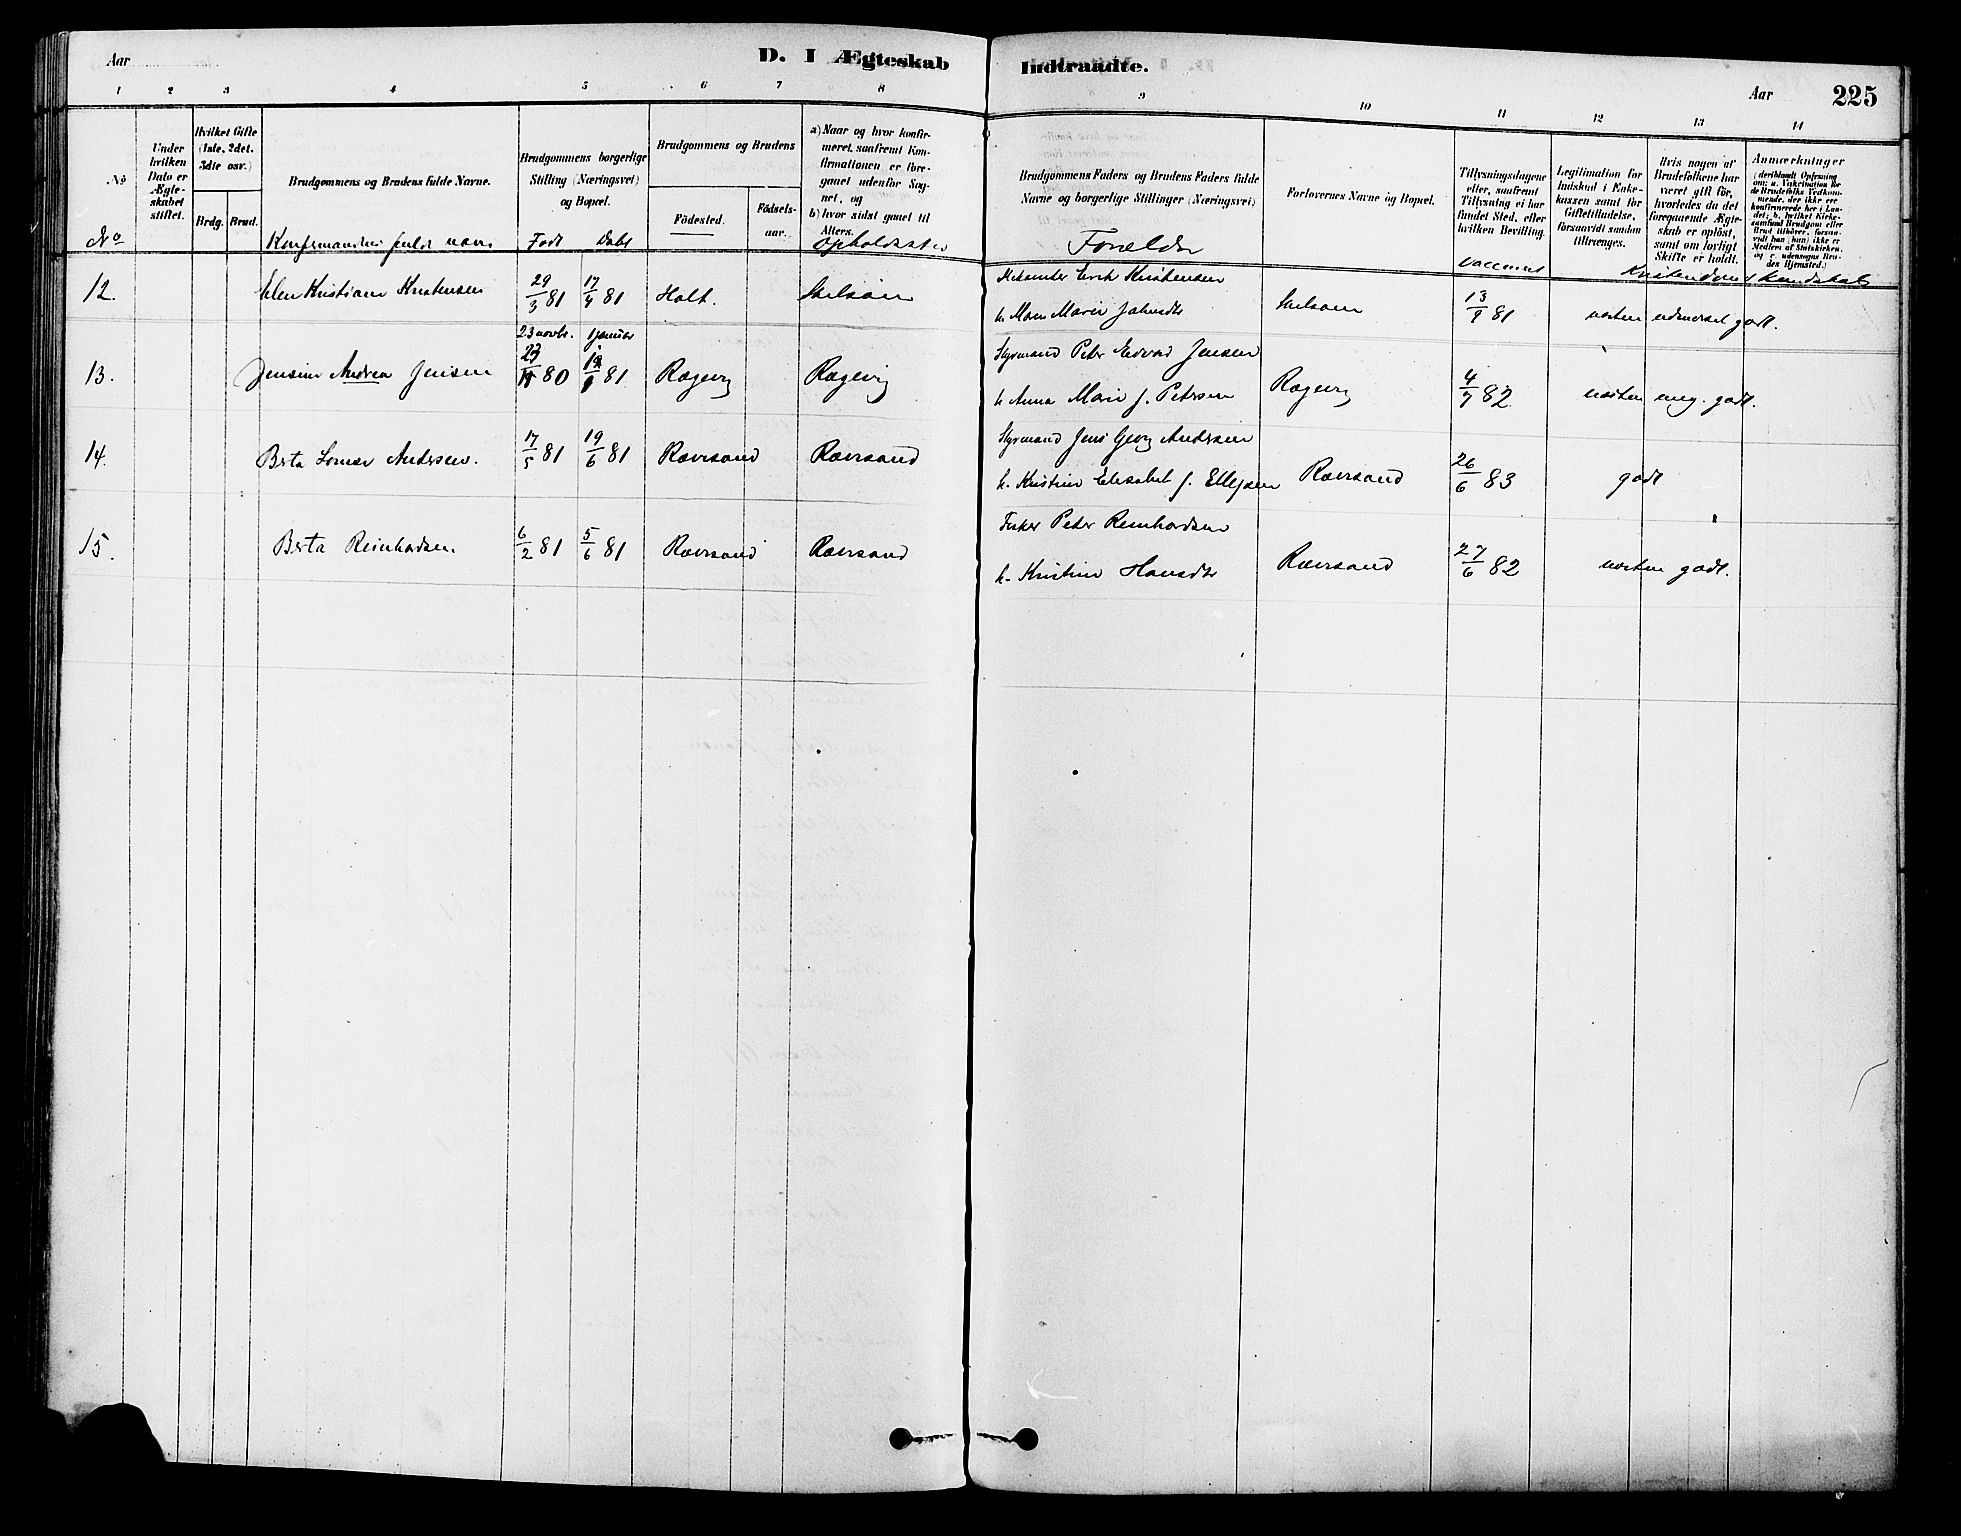 Aar
D. I Ægteskab
Indtraadte.
Aar
225
1 2 3 4 5 6 7 8
9 10 11 12 13 14
No
Under hvilken Dato er Ægteskabet stiftet.
Hvilket Gifte (1ste, 2det. 3dte osv.)
Brdg. Brud.
Brudgommens og Brudens fulde Navne.
Brudgommens borgerlige Stilling (Næringsvei) og Bopæl.
Brudgommens og Brudens
Födested.
Födsels-aar.
a) Naar og hvor konfirmeret, saafremt Konfirmationen er foregaaet udenfor Sognet, og
b) hvor sidst gaaet til Alters.
Brudgommens Faders og Brudens Faders fulde Navne og borgerlige Stillinger (Næringsvei)
Forlovernes Navne og Bopæl.
Tillysningsdagene eller, saafremt Tillysning ei har fundet Sted, efter hvilken Bevilling.
Legitimation for Indskud i Enkekassen samt for Giftetilladelse, forsaavidt saadan tiltrænges.
Hvis nogen af Brudefolkene har været gift för, hvorledes da det foregaaende Ægteskab er oplöst, samt om lovligt Skifte er holdt.
Anmærkninger
No
Konfirmandens fulde navn
Födt Döbt
opholdssted
Forældre
vaccineret
Kristendomskundskab
12. Elen Kristiane Kristensen 29/3 81 17/4 81 Holt.
Erik Kristensen
h. Maren Marie 13/9 81 næsten udmerket godt.
23 novbr. 1 januar
13. Jensine Andrea Jensen 23/11 80 81 Rægevig Rægevig
Styrmand Peter Edvard Jensen
h. Anna Marie f. Petersen Rægevig 4/7 82 næsten meg. godt.
14. Berta Andersen. 17/5 81 19/6 81 Rævesand Rævesand
Styrmand Jens Georg Andersen
h. Kristine Elisabet f. Ellefsen Rævesand 26/6 83 godt
15. Berta Reinhardsen 6/2 81 5/6 81 Rævesand Rævesand
Fisker Peder Reinhardsen
h. Kristine Hansdtr Rævesand 27/6 82 næsten godt.